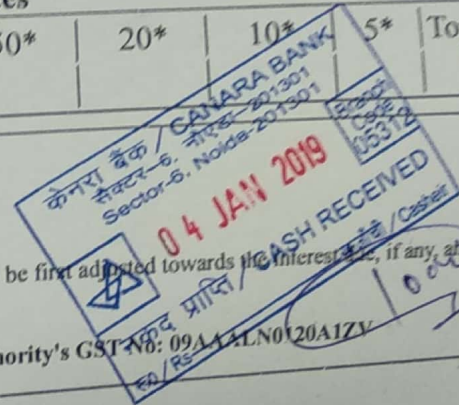 20* 10* 5* To
केनरा बैंक / CANARA BANK
सैक्टर-6, नौएडा-201301
Sector-6, Noida-201301
Branch
Code
05312
04 JAN 2019
नकद प्राप्ति / CASH RECEIVED
/ Casheir
रु0 / Rs
be first adjusted towards the interest if any,
GST No: 09AAALN0120A1ZV